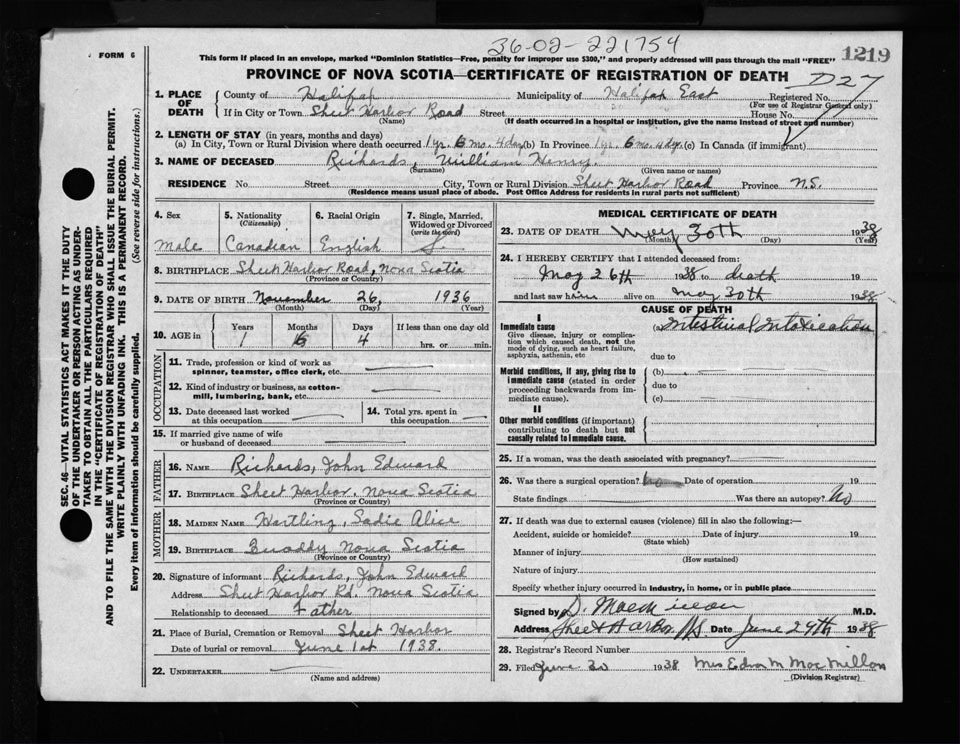 36-02-221754
FORM 6
This form if placed in an envelope, marked "Dominion Statistics—Free, penalty for improper use $300," and properly addressed will pass through the mail "FREE"
1219
PROVINCE OF NOVA SCOTIA—CERTIFICATE OF REGISTRATION OF DEATH
D27
1. PLACE OF DEATH
County of Halifax Municipality of Halifax East Registered No.
(For use of Registrar General only)
If in City or Town Sheet Harbor Road Street House No.
(Name) (If death occurred in a hospital or institution, give the name instead of street and number)
2. LENGTH OF STAY (in years, months and days)
(a) In City, Town or Rural Division where death occurred 1 yr. 6 mo. 4 day (b) In Province 1 yr. 6 mo. 4 dy. (c) In Canada (if immigrant)
3. NAME OF DECEASED Richards, William Henry.
(Surname) (Given name or names)
RESIDENCE No. Street City, Town or Rural Division Sheet Harbor Road Province N.S.
(Residence means usual place of abode. Post Office Address for residents in rural parts not sufficient)
4. Sex Male
5. Nationality (Citizenship) Canadian
6. Racial Origin English
7. Single, Married, Widowed or Divorced (write the word) S
8. BIRTHPLACE Sheet Harbor Road, Nova Scotia
(Province or Country)
9. DATE OF BIRTH November 26, 1936
(Month) (Day) (Year)
10. AGE in Years Months Days If less than one day old
1 6 4 hrs. or min.
OCCUPATION
11. Trade, profession or kind of work as spinner, teamster, office clerk, etc.
12. Kind of industry or business, as cotton-mill, lumbering, bank, etc.
13. Date deceased last worked at this occupation
14. Total yrs. spent in this occupation
15. If married give name of wife or husband of deceased
FATHER
16. NAME Richards, John Edward
17. BIRTHPLACE Sheet Harbor, Nova Scotia
(Province or Country)
MOTHER
18. MAIDEN NAME Hartling, Sadie Alice
19. BIRTHPLACE Quoddy Nova Scotia
(Province or Country)
20. Signature of informant Richards, John Edward
Address Sheet Harbor Rd. Nova Scotia
Relationship to deceased Father
21. Place of Burial, Cremation or Removal Sheet Harbor
Date of burial or removal June 1st 1938.
22. UNDERTAKER
(Name and address)
MEDICAL CERTIFICATE OF DEATH
23. DATE OF DEATH May 30th 1938
(Month) (Day) (Year)
24. I HEREBY CERTIFY that I attended deceased from:
May 26th 1938 to death 19
and last saw him alive on May 30th 1938
CAUSE OF DEATH
I
Immediate cause
Give disease, injury or complication which caused death, not the mode of dying, such as heart failure, asphyxia, asthenia, etc
(a) Intestinal Intoxication
due to
Morbid conditions, if any, giving rise to immediate cause (stated in order proceeding backwards from immediate cause).
(b)
due to
(c)
II
Other morbid conditions (if important) contributing to death but not causally related to immediate cause.
25. If a woman, was the death associated with pregnancy?
26. Was there a surgical operation? No Date of operation 19
State findings Was there an autopsy? No
27. If death was due to external causes (violence) fill in also the following:—
Accident, suicide or homicide? Date of injury 19
(State which)
Manner of injury
(How sustained)
Nature of injury
Specify whether injury occurred in industry, in home, or in public place
Signed by D. MacMillan M.D.
Address Sheet Harbor N.S. Date June 29th 1938
28. Registrar's Record Number
29. Filed June 30 1938 Mrs Edna M MacMillan
(Division Registrar)
SEC. 46—VITAL STATISTICS ACT MAKES IT THE DUTY
OF THE UNDERTAKER OR PERSON ACTING AS UNDER-
TAKER TO OBTAIN ALL THE PARTICULARS REQUIRED
IN THE "CERTIFICATE OF REGISTRATION OF DEATH"
AND TO FILE THE SAME WITH THE DIVISION REGISTRAR WHO SHALL ISSUE THE BURIAL PERMIT.
WRITE PLAINLY WITH UNFADING INK. THIS IS A PERMANENT RECORD.
Every item of information should be carefully supplied. (See reverse side for instructions.)